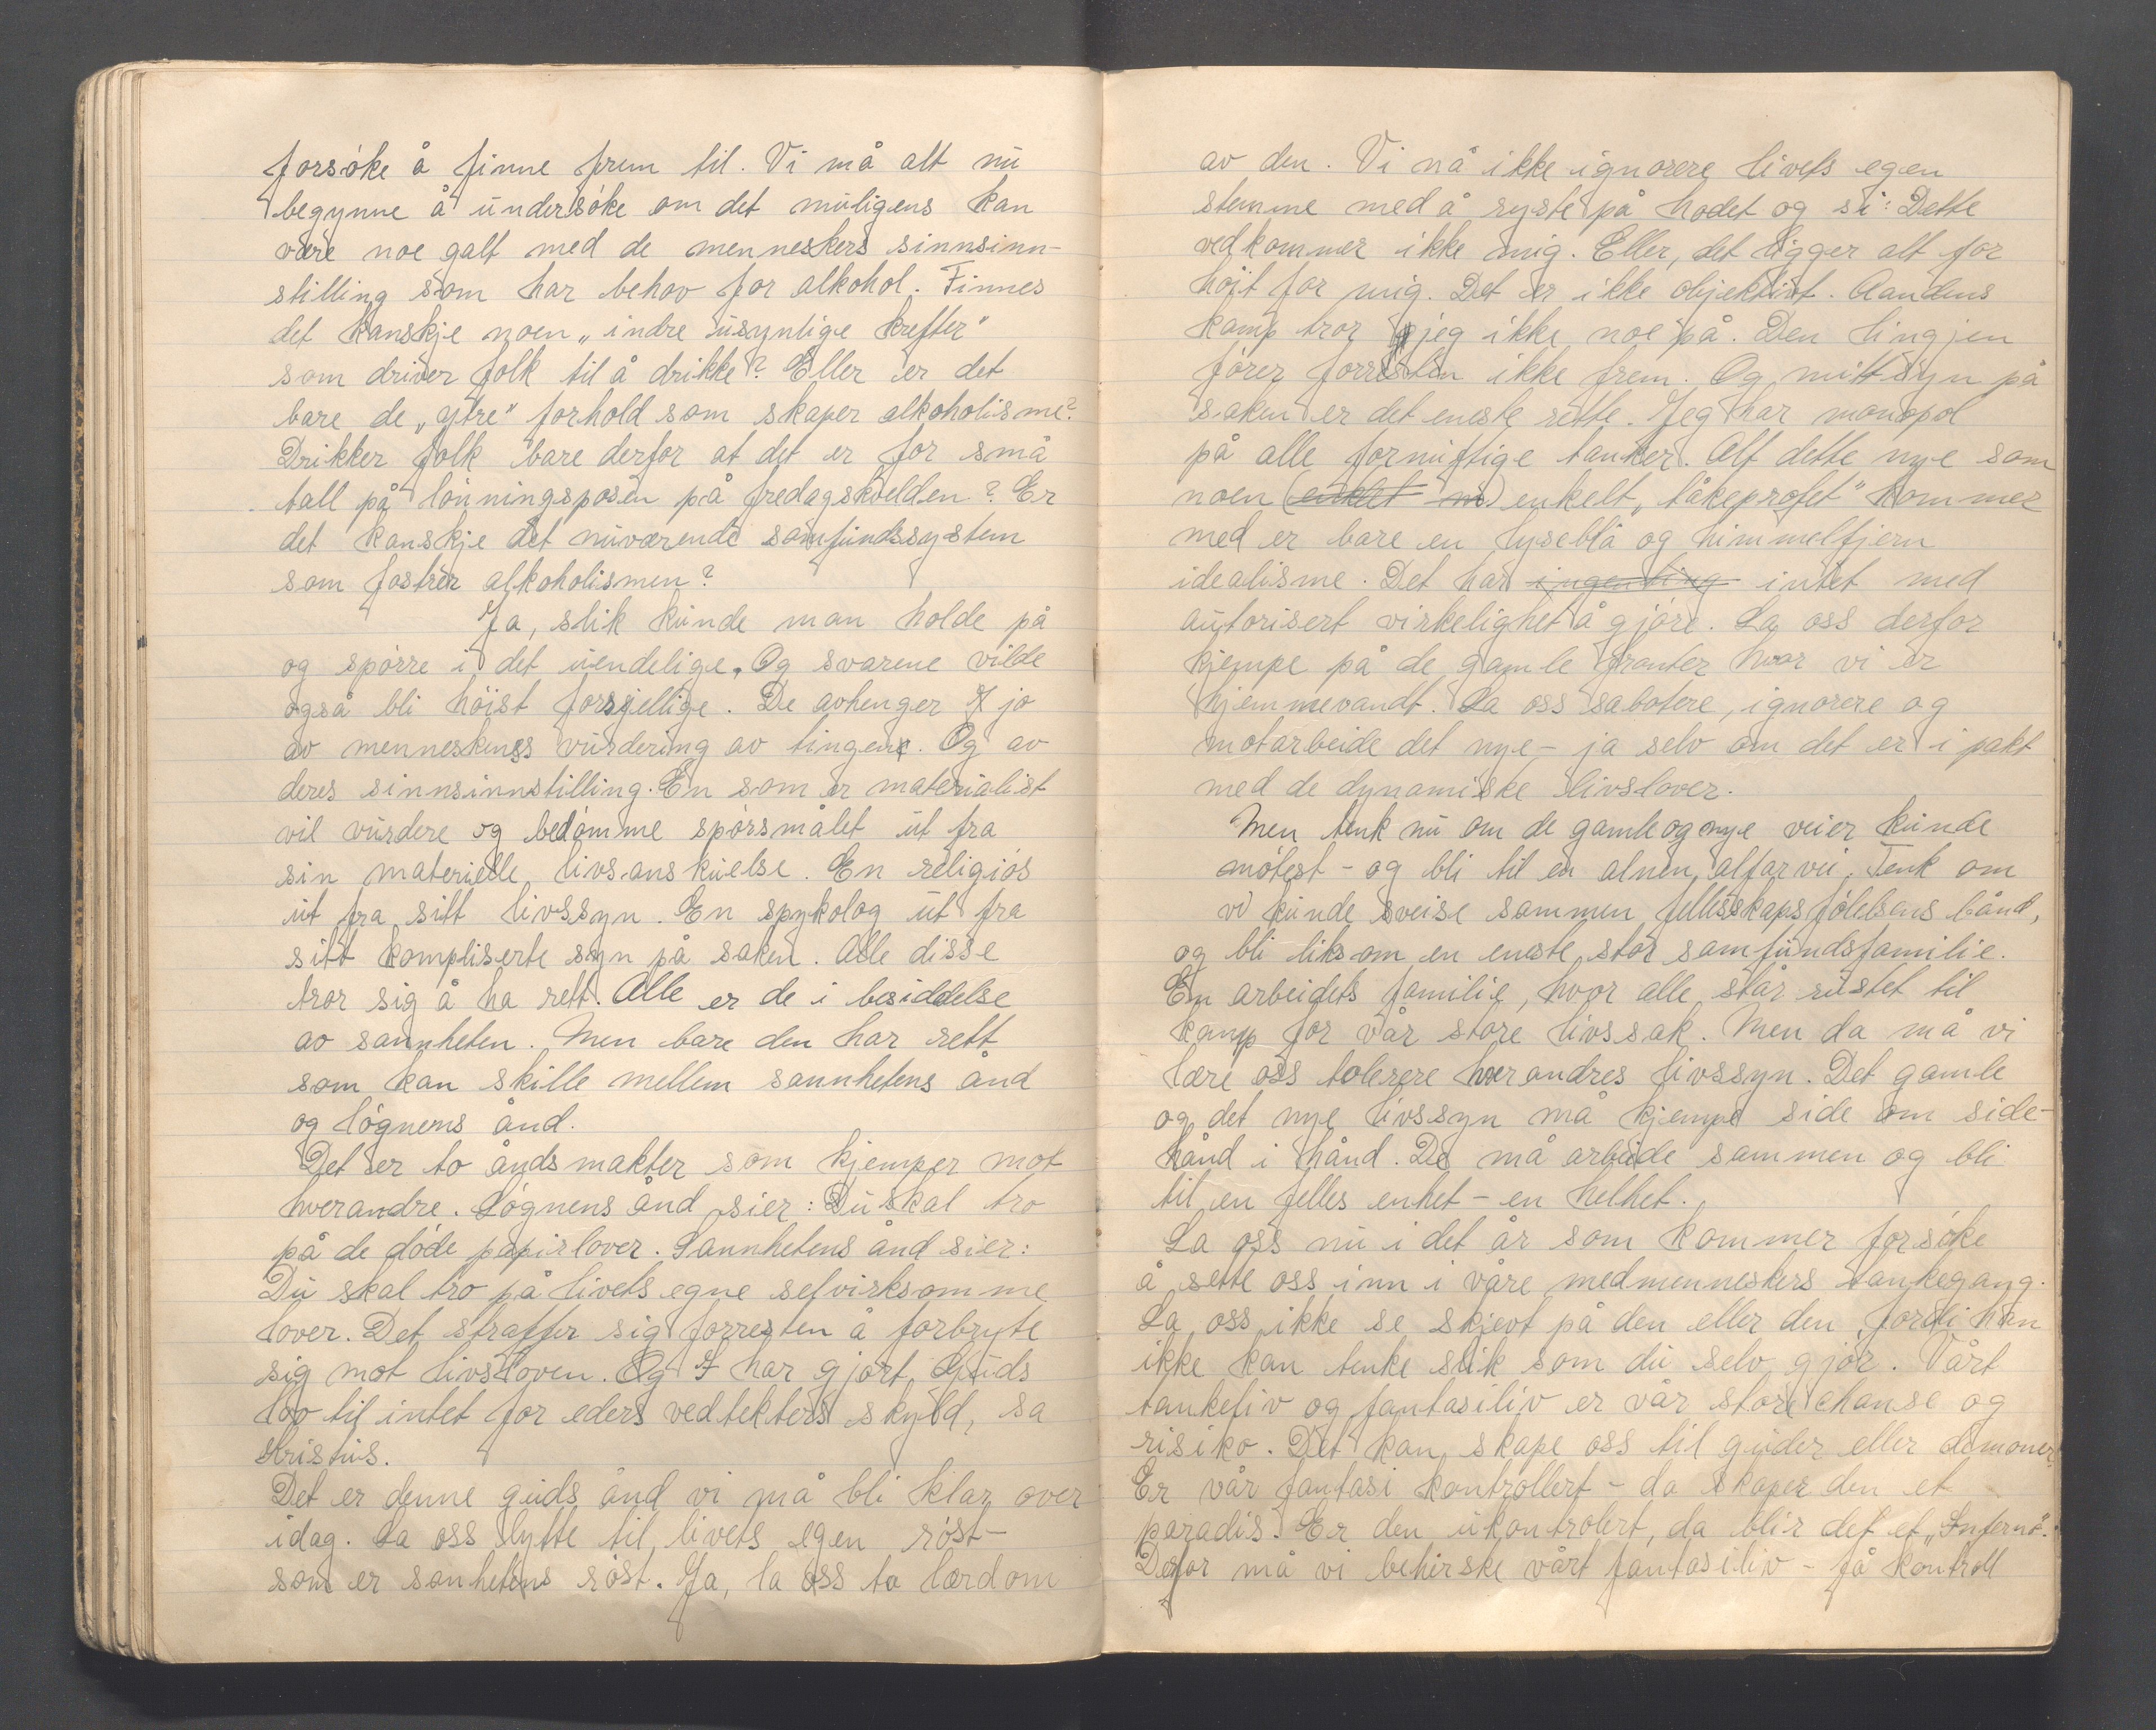 forsøke å finne frem til. Vi må alt nu
begynne å undersøke om det muligens kan
være noe galt med de menneskers sinnsinn-
stilling som har behov for alkohol. Finnes
det kanskje noen „indre usynlige krefter"
som driver folk til å drikke? Eller er det
bare de „ytre" forhold som skaper alkoholisme?
Drikker folk bare derfor at det er for små
tall på lønningsposen på fredagskvelden? Er
det kanskje det nuværende samfundssystem
som fostrer alkoholismen?
Ja, slik kunde man holde på
og spørre i det uendelige. Og svarene vilde
også bli høist forskjellige. De avhenger jo
av menneskenes vurdering av tingene. Og av
deres sinnsinnstilling. En som er materialist
vil vurdere og bedømme spørsmålet ut fra
sin materielle livsanskuelse. En religiøs
ut fra sitt livssyn. En spykolog ut fra
sitt kompliserte syn på saken. Alle disse
tror sig å ha rett. Alle er de i besiddelse
av sannheten. Men bare den har rett
som kan skille mellem sannhetens ånd
og løgnens ånd.
Det er to åndsmakter som kjemper mot
hverandre. Løgnens ånd sier: Du skal tro
på de døde papirlover. Sannhetens ånd sier:
Du skal tro på livets egne selvirksomme
lover. Det straffer sig forresten å forbryte
sig mot livsloven. Og I har gjort Guds
lov til intet for eders vedtekters skyld, sa
Kristus.
Det er denne guds ånd vi må bli klar over
idag. La oss lytte til livets egen røst-
som er sanhetens røst. Ja, la oss ta lærdom
av den. Vi må ikke ignorere livets egen
stemme med å ryste på hodet og si: Dette
vedkommer ikke mig. Eller, det ligger alt for
høit for mig. Det er ikke objektivt. Aandens
kamp tror jeg ikke noe på. Den lingjen
fører forresten ikke frem. Og mitt syn på
saken er det eneste rette. Jeg har monopol
på alle fornuftige tanker. Alt dette nye som
noen enkelt „tåkeprofet" kommer
med er bare en lyseblå og himmelfjern
idealisme. Det har ingenting intet med
autorisert virkelighet å gjøre. La oss derfor
kjempe på de gamle fronter hvor vi er
hjemmevandt. La oss sabotere, ignorere og
motarbeide det nye - ja selv om det er i pakt
med de dynamiske livslover.
Men tenk nu om de gamle og nye veier kunde
møtest - og bli til en almen alfarvei. Tenk om
vi kunde sveise sammen fellesskapsfølelsens bånd,
og bli liksom en eneste stor samfundsfamilie.
En arbeidets familie, hvor alle står rustet til
kamp for vår store livssak. Men da må vi
lære oss tolerere hverandres livssyn. Det gamle
og det nye livssyn må kjempe side om side-
hånd i hånd. De må arbeide sammen og bli
til en felles enhet - en helhet.
La oss nu i det år som kommer forsøke
å sette oss inn i våre medmenneskers tankegang.
La oss ikke se skjevt på den eller den fordi han
ikke kan tenke slik som du selv gjør. Vårt
tankeliv og fantasiliv er vår store chanse og
risiko. Det kan skape oss til guder eller demoner.
Er vår fantasi kontrollert - da skaper den et
paradis. Er den ukontrolert, da blir det et „Inferno".
Derfor må vi beherske vårt fantasiliv - få kontroll